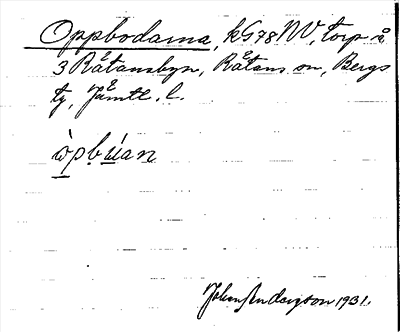 Oppbodarna, kG78NV, torp å
3 Råtansbyn, Råtans sn, Bergs
tg, Jämtl. l.
òpbúan
Johan Anderzson 1931.